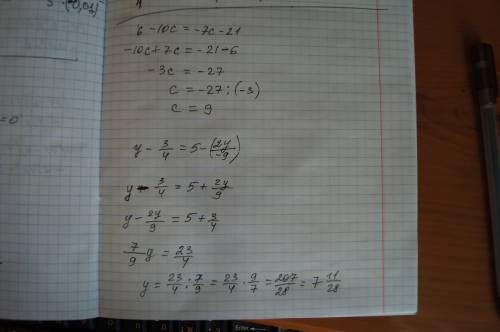 5 · (-0,01)
= 0
6 - 10c = -7c - 21
-10c + 7c = -21 - 6
-3c = -27
c = -27 : (-3)
c = 9
y - 3/4 = 5 - (2y/-9)
y - 3/4 = 5 + 2y/9
y - 2y/9 = 5 + 3/4
7/9 y = 23/4
y = 23/4 : 7/9 = 23/4 · 9/7 = 207/28 = 7 11/28
Enter